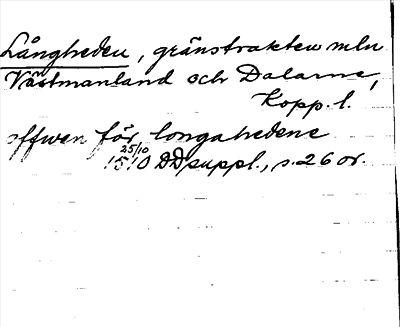 Långheden, gränstrakten mln
Västmanland och Dalarne,
Kopp. l.
offwen för longahedene
25/10 1510 DD suppl., s. 26 or.